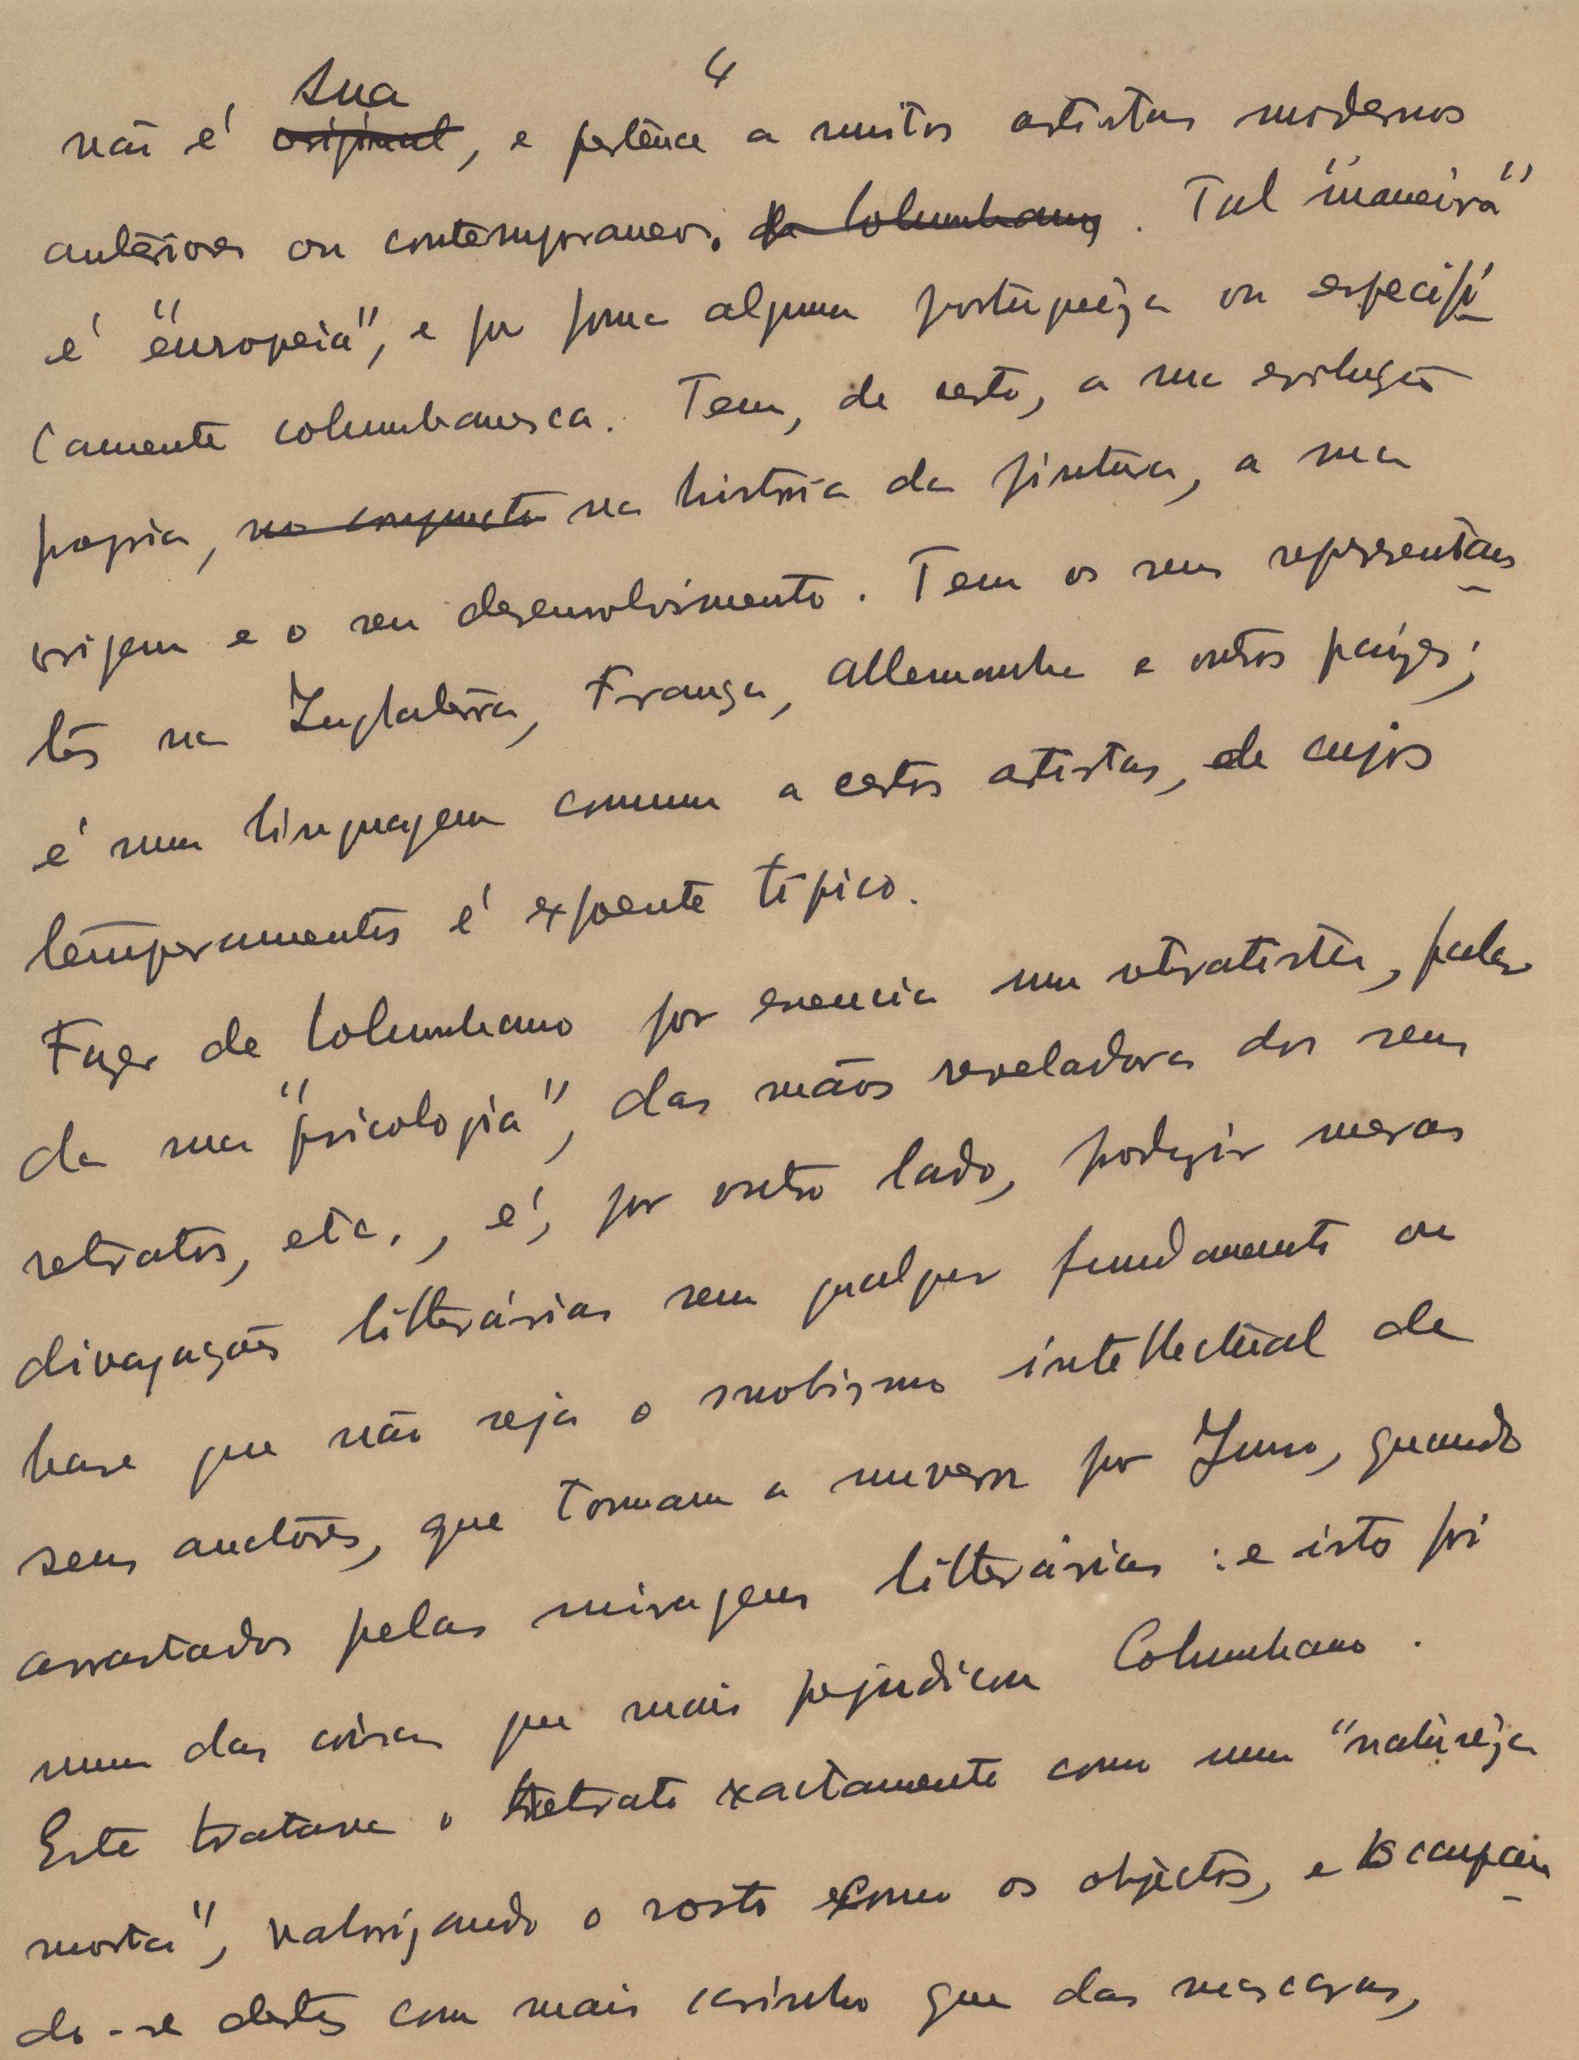 4
não é ~~original~~ sua, e pertence a muitos artistas modernos
anteriores ou contemporaneos. ~~a Columbano~~. Tal "maneira"
é "europeia", e por forma alguma portugueza ou especifi-
camente columbanesca. Tem, de resto, a sua evolução
propria, ~~no conjuncto~~ na história da pintura, a sua
origem e o seu desenvolvimento. Tem os seus representan-
tes na Inglaterra, França, Allemanha e outros paizes;
é uma linguagem comum a certos artistas, de cujos
temperamentos é expoente típico.
Fazer de Columbano por essencia um retratista, falar
da sua "psicologia", das mãos reveladoras dos seus
retratos, etc., é, por outro lado, produzir meras
divagações litterárias sem qualquer fundamento ou
base que não seja o snobismo intellectual de
seus auctores, que tomam a nuvem por Juno, quando
arrastados pelas miragens litterárias: e isto foi
uma das coisas que mais prejudicou Columbano.
Este tratava o retrato exactamente como uma "natureza
morta", valorizando o rosto como os objectos, e occupan-
do-se destes com mais carinho que das mascaras,